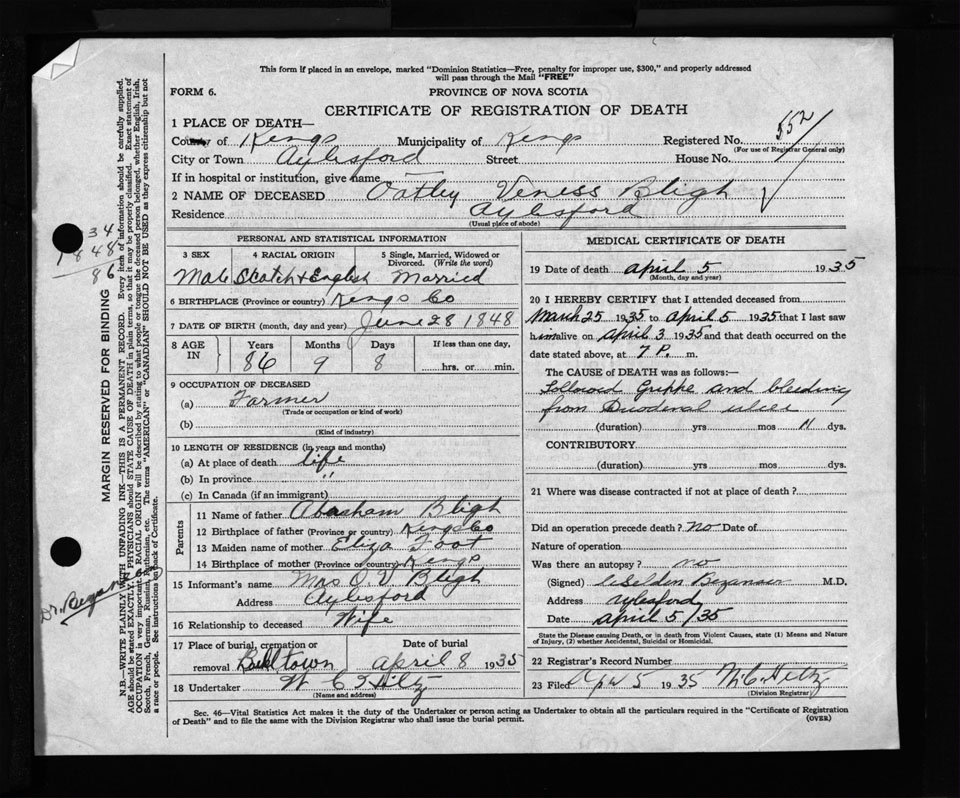 This form if placed in an envelope, marked "Dominion Statistics—Free, penalty for improper use, $300," and properly addressed
will pass through the Mail "FREE"
FORM 6.
PROVINCE OF NOVA SCOTIA
CERTIFICATE OF REGISTRATION OF DEATH
1 PLACE OF DEATH—
County of Kings Municipality of Kings Registered No. 552
(For use of Registrar General only)
City or Town Aylesford Street House No.
If in hospital or institution, give name —
2 NAME OF DECEASED Oatley Veness Bligh
Residence Aylesford
(Usual place of abode)
PERSONAL AND STATISTICAL INFORMATION
3 SEX 4 RACIAL ORIGIN 5 Single, Married, Widowed or
Divorced. (Write the word)
Male Scotch + English Married
6 BIRTHPLACE (Province or country) Kings Co
7 DATE OF BIRTH (month, day and year) June 28 1848
8 AGE IN Years Months Days If less than one day,
86 9 8 hrs. or min.
9 OCCUPATION OF DECEASED
(a) Farmer
(Trade or occupation or kind of work)
(b)
(Kind of industry)
10 LENGTH OF RESIDENCE (in years and months)
(a) At place of death life
(b) In province "
(c) In Canada (if an immigrant)
Parents
11 Name of father Abraham Bligh
12 Birthplace of father (Province or country) Kings Co
13 Maiden name of mother Eliza Foot
14 Birthplace of mother (Province or country) Kings
15 Informant's name Mrs O. V Bligh
Address Aylesford
16 Relationship to deceased Wife
17 Place of burial, cremation or Date of burial
removal Buelltown April 8 1935
18 Undertaker W C Hiltz
(Name and address)
MEDICAL CERTIFICATE OF DEATH
19 Date of death april 5 1935
(Month, day and year)
20 I HEREBY CERTIFY that I attended deceased from
March 25 1935 to april 5 1935 that I last saw
him alive on april 3 1935 and that death occurred on the
date stated above, at 7 P. m.
The CAUSE of DEATH was as follows:—
Followed Grippe and bleeding
from Duodenal ulcer
(duration) yrs mos 11 dys.
CONTRIBUTORY
(duration) yrs. mos. dys.
21 Where was disease contracted if not at place of death?
Did an operation precede death? no Date of
Nature of operation
Was there an autopsy? no
(Signed) Selden Bezanson M.D.
Address Aylesford
Date april 5/35
State the Disease causing Death, or in death from Violent Causes, state (1) Means and Nature
of Injury, (2) whether Accidental, Suicidal or Homicidal.
22 Registrar's Record Number
23 Filed Apr 5 1935 W.C. Hiltz
(Division Registrar)
Sec. 46—Vital Statistics Act makes it the duty of the Undertaker or person acting as Undertaker to obtain all the particulars required in the "Certificate of Registration
of Death" and to file the same with the Division Registrar who shall issue the burial permit.
(OVER)
MARGIN RESERVED FOR BINDING
N.B.—WRITE PLAINLY WITH UNFADING INK—THIS IS A PERMANENT RECORD. Every item of information should be carefully supplied.
AGE should be stated EXACTLY. PHYSICIANS should STATE CAUSE OF DEATH in plain terms, so that it may be properly classified. Exact statement of
OCCUPATION is very important. RACIAL ORIGIN will be described by stating to what people or tongue the deceased person belonged, whether English, Irish,
Scotch, French, German, Russian, Ruthenian, etc. The terms "AMERICAN" or "CANADIAN" SHOULD NOT BE USED as they express citizenship but not
a race or people. See instructions on back of Certificate.
34
1848
86